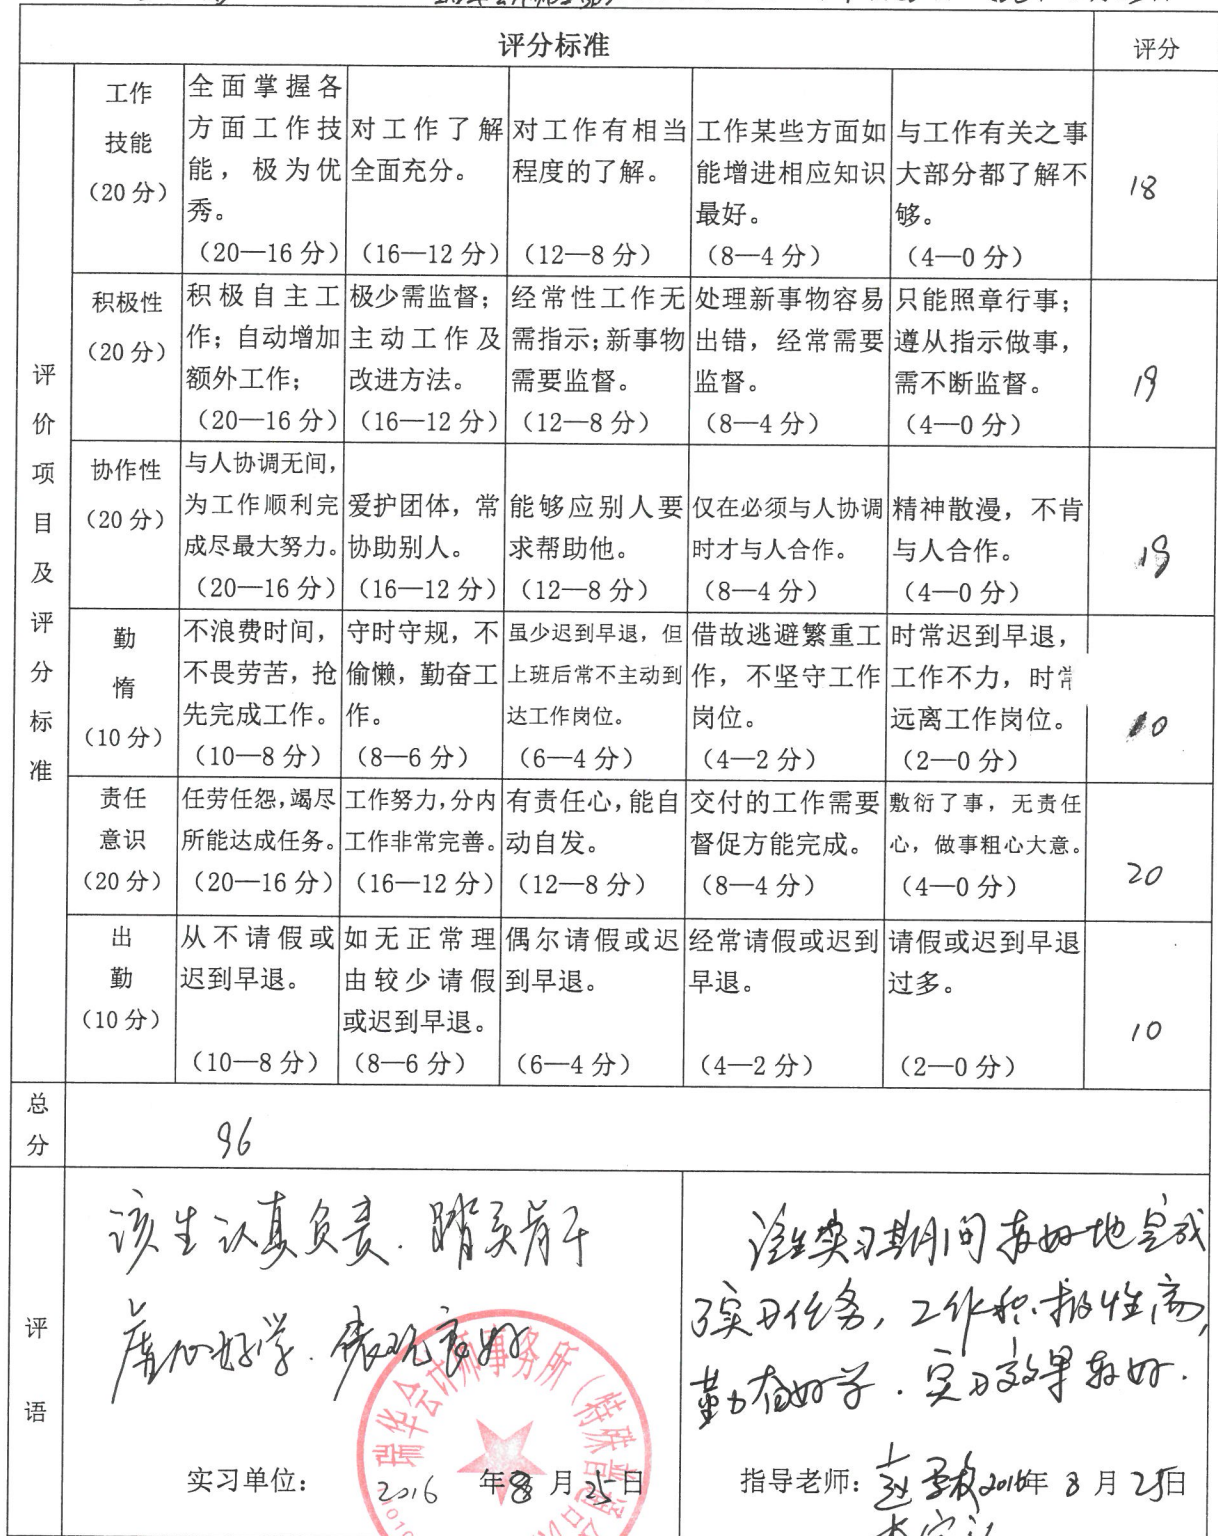 评分标准 评分
评价项目及评分标准
工作技能（20分）
全面掌握各方面工作技能，极为优秀。（20—16分）
对工作了解全面充分。（16—12分）
对工作有相当程度的了解。（12—8分）
工作某些方面如能增进相应知识最好。（8—4分）
与工作有关之事大部分都了解不够。（4—0分）
18
积极性（20分）
积极自主工作；自动增加额外工作；（20—16分）
极少需监督；主动工作及改进方法。（16—12分）
经常性工作无需指示；新事物需要监督。（12—8分）
处理新事物容易出错，经常需要监督。（8—4分）
只能照章行事；遵从指示做事，需不断监督。（4—0分）
19
协作性（20分）
与人协调无间，为工作顺利完成尽最大努力。（20—16分）
爱护团体，常协助别人。（16—12分）
能够应别人要求帮助他。（12—8分）
仅在必须与人协调时才与人合作。（8—4分）
精神散漫，不肯与人合作。（4—0分）
19
勤惰（10分）
不浪费时间，不畏劳苦，抢先完成工作。（10—8分）
守时守规，不偷懒，勤奋工作。（8—6分）
虽少迟到早退，但上班后常不主动到达工作岗位。（6—4分）
借故逃避繁重工作，不坚守工作岗位。（4—2分）
时常迟到早退，工作不力，时常远离工作岗位。（2—0分）
10
责任意识（20分）
任劳任怨，竭尽所能达成任务。（20—16分）
工作努力，分内工作非常完善。（16—12分）
有责任心，能自动自发。（12—8分）
交付的工作需要督促方能完成。（8—4分）
敷衍了事，无责任心，做事粗心大意。（4—0分）
20
出勤（10分）
从不请假或迟到早退。（10—8分）
如无正常理由较少请假或迟到早退。（8—6分）
偶尔请假或迟到早退。（6—4分）
经常请假或迟到早退。（4—2分）
请假或迟到早退过多。（2—0分）
10
总分
96
评语
该生认真负责．踏实肯干
虚心好学．表现良好
瑞华会计师事务所（特殊普通合
实习单位： 2016年8月25日
该生实习期间较好地完成
了实习任务，工作积极性高，
勤奋好学．实习效果较好．
指导老师： 2016年8月25日